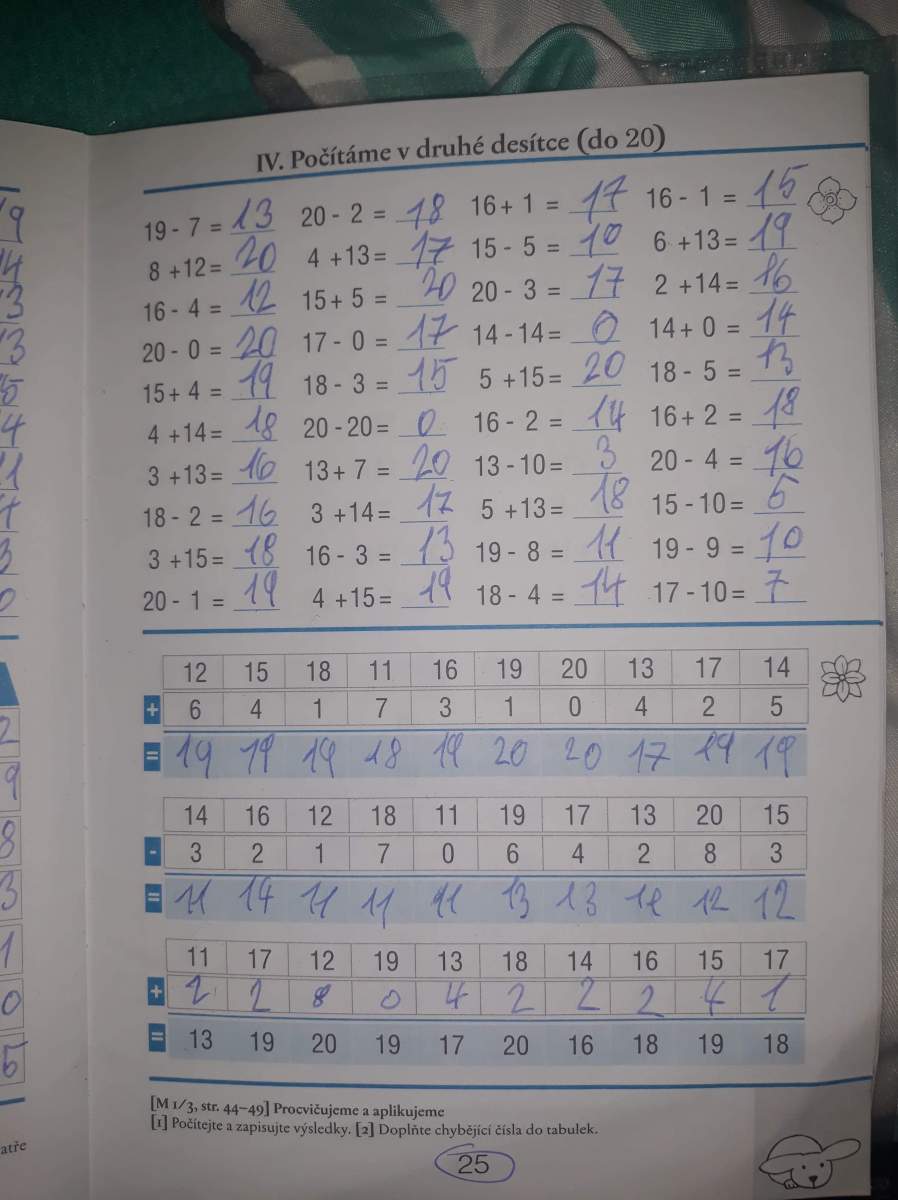 IV. Počítáme v druhé desítce (do 20)
19 - 7 = 13 20 - 2 = 18 16 + 1 = 17 16 - 1 = 15
8 + 12 = 20 4 + 13 = 17 15 - 5 = 10 6 + 13 = 19
16 - 4 = 12 15 + 5 = 20 20 - 3 = 17 2 + 14 = 16
20 - 0 = 20 17 - 0 = 17 14 - 14 = 0 14 + 0 = 14
15 + 4 = 19 18 - 3 = 15 5 + 15 = 20 18 - 5 = 13
4 + 14 = 18 20 - 20 = 0 16 - 2 = 14 16 + 2 = 18
3 + 13 = 16 13 + 7 = 20 13 - 10 = 3 20 - 4 = 16
18 - 2 = 16 3 + 14 = 17 5 + 13 = 18 15 - 10 = 5
3 + 15 = 18 16 - 3 = 13 19 - 8 = 11 19 - 9 = 10
20 - 1 = 19 4 + 15 = 19 18 - 4 = 14 17 - 10 = 7
12 15 18 11 16 19 20 13 17 14
+ 6 4 1 7 3 1 0 4 2 5
= 19 19 19 18 19 20 20 17 19 19
14 16 12 18 11 19 17 13 20 15
- 3 2 1 7 0 6 4 2 8 3
= 11 14 11 11 11 13 13 11 12 12
11 17 12 19 13 18 14 16 15 17
+ 2 2 8 0 4 2 2 2 4 1
= 13 19 20 19 17 20 16 18 19 18
[M 1/3, str. 44–49] Procvičujeme a aplikujeme
[1] Počítejte a zapisujte výsledky. [2] Doplňte chybějící čísla do tabulek.
25